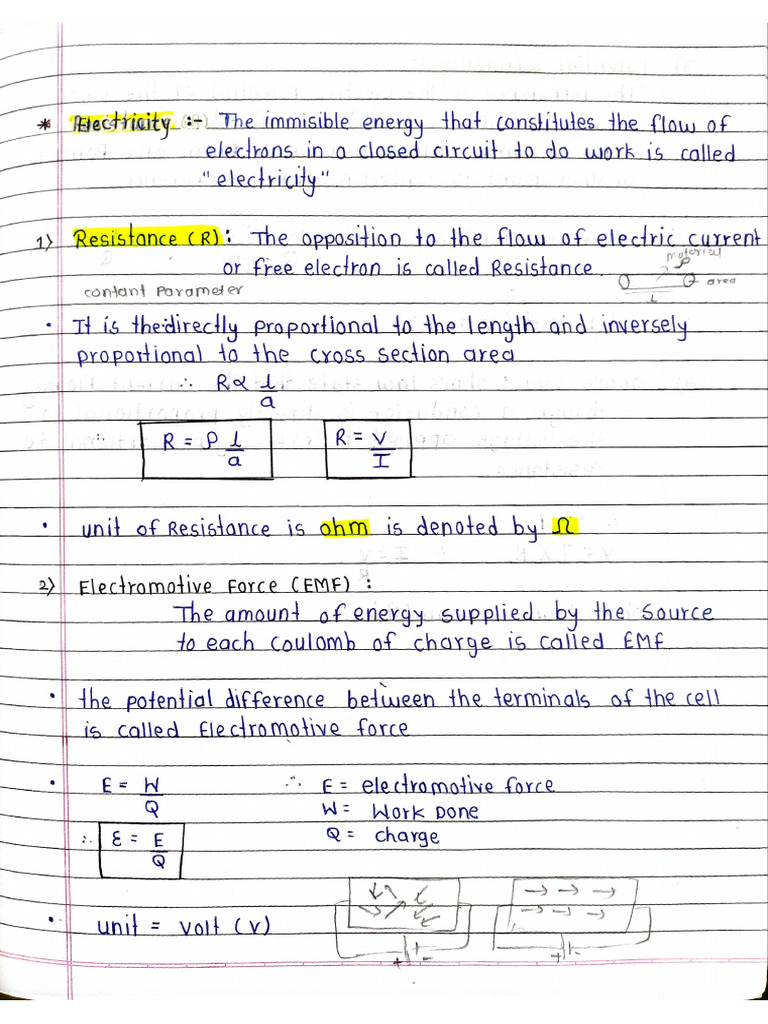 * Electricity :- The immisible energy that constitutes the flow of
electrons in a closed circuit to do work is called
"electricity"
1) Resistance (R) : The opposition to the flow of electric current
or free electron is called Resistance.
material
area
L
contant Parameter
• It is the directly proportional to the length and inversely
proportional to the cross section area
∴ R ∝ l/a
∴ R = ρ l/a R = V/I
• unit of Resistance is ohm is denoted by Ω
2) Electromotive Force (EMF) :
The amount of energy supplied by the source
to each coulomb of charge is called EMF
• the potential difference between the terminals of the cell
is called Electromotive force
• E = W/Q ∴ E = electromotive force
W = Work Done
∴ ε = E/Q Q = charge
• unit = volt (v)
+ + - + + -